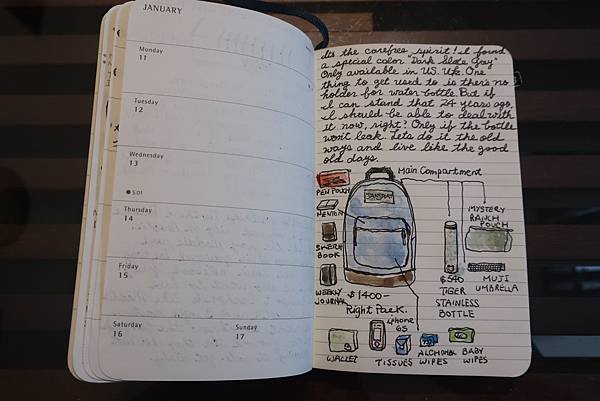 JANUARY
Monday
11
Tuesday
12
Wednesday
13
● 5:01
Thursday
14
Friday
15
Saturday
16
Sunday
17
It's the carefree spirit! I found
a special color "Dark Slate Gray"
Only available in US. Uts. One
thing to get used to is there's no
holder for water bottle. But if
I can stand that 24 years ago,
I should be able to deal with
it now, right? Only if the bottle
won't leak. Lets do it the old
ways and live like the good
old days.
Main Compartment
PEN POUCH
JANSPORT
MYSTERY
RANCH
POUCH
SKETCH
BOOK
WEEKLY
JOURNAL
$1400-
Right Pack.
$540
TIGER
STAINLESS
BOTTLE
MUJI
UMBRELLA
iphone
6S
WALLET
TISSUES
ALCOHOL
WIPES
BABY
WIPES